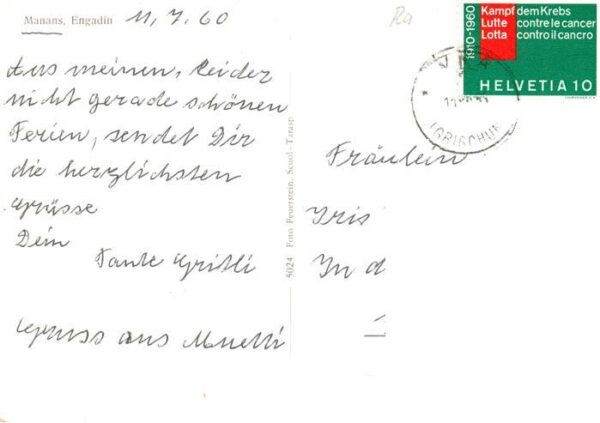 Manans, Engadin
11.7.60
Aus meinen, leider
nicht gerade schönen
Ferien, sendet Dir
die herzlichsten
Grüsse
Dein
Tante Gritli
Gruss aus Muetti
5024 Foto Feuerstein, Scuol-Tarasp
Ra
1910-1960
Kampf dem Krebs
Lutte contre le cancer
Lotta contro il cancro
HELVETIA 10
Fräulein
Iris